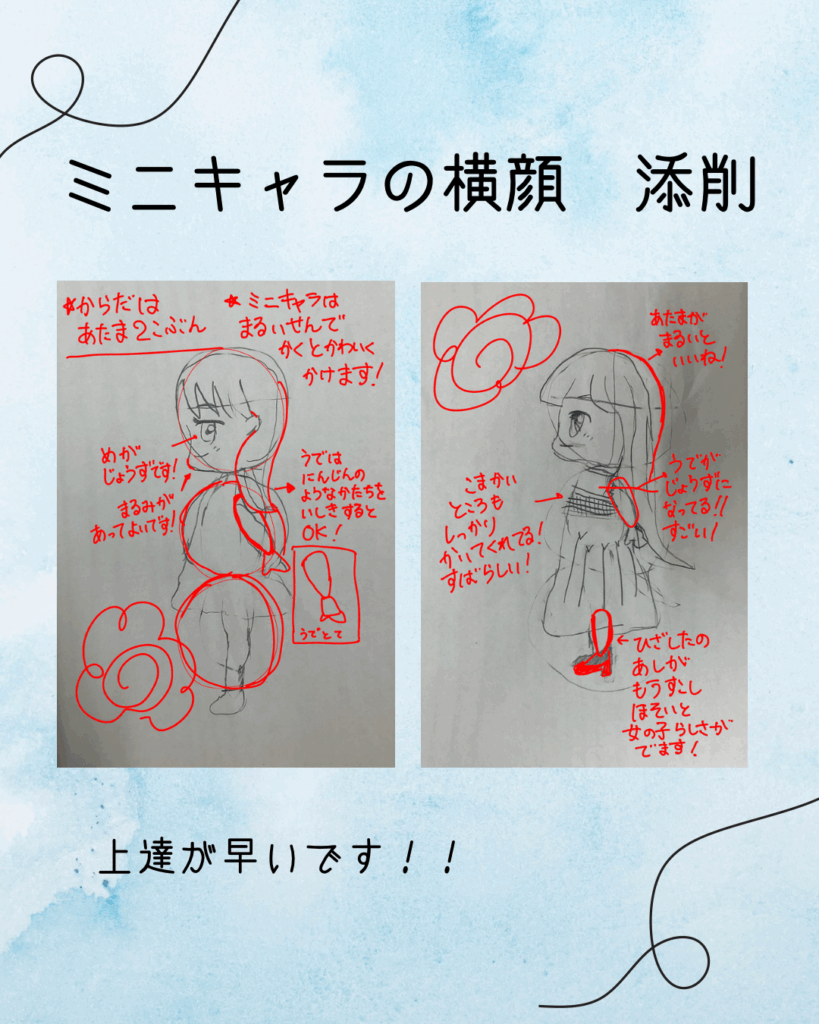 ミニキャラの横顔　添削
☆からだは
あたま2こぶん
★ミニキャラは
まるいせんで
かくとかわいく
かけます!
めが
じょうずです!
まるみが
あってよいです!
うでは
にんじんの
ようなかたちを
いしきすると
OK!
うでとて
あたまが
まるいと
いいね!
うでが
じょうずに
なってる!!
すごい!
こまかい
ところも
しっかり
かいてくれてる!
すばらしい!
←ひざしたの
あしが
もうすこし
ほそいと
女の子らしさが
でます!
上達が早いです!!